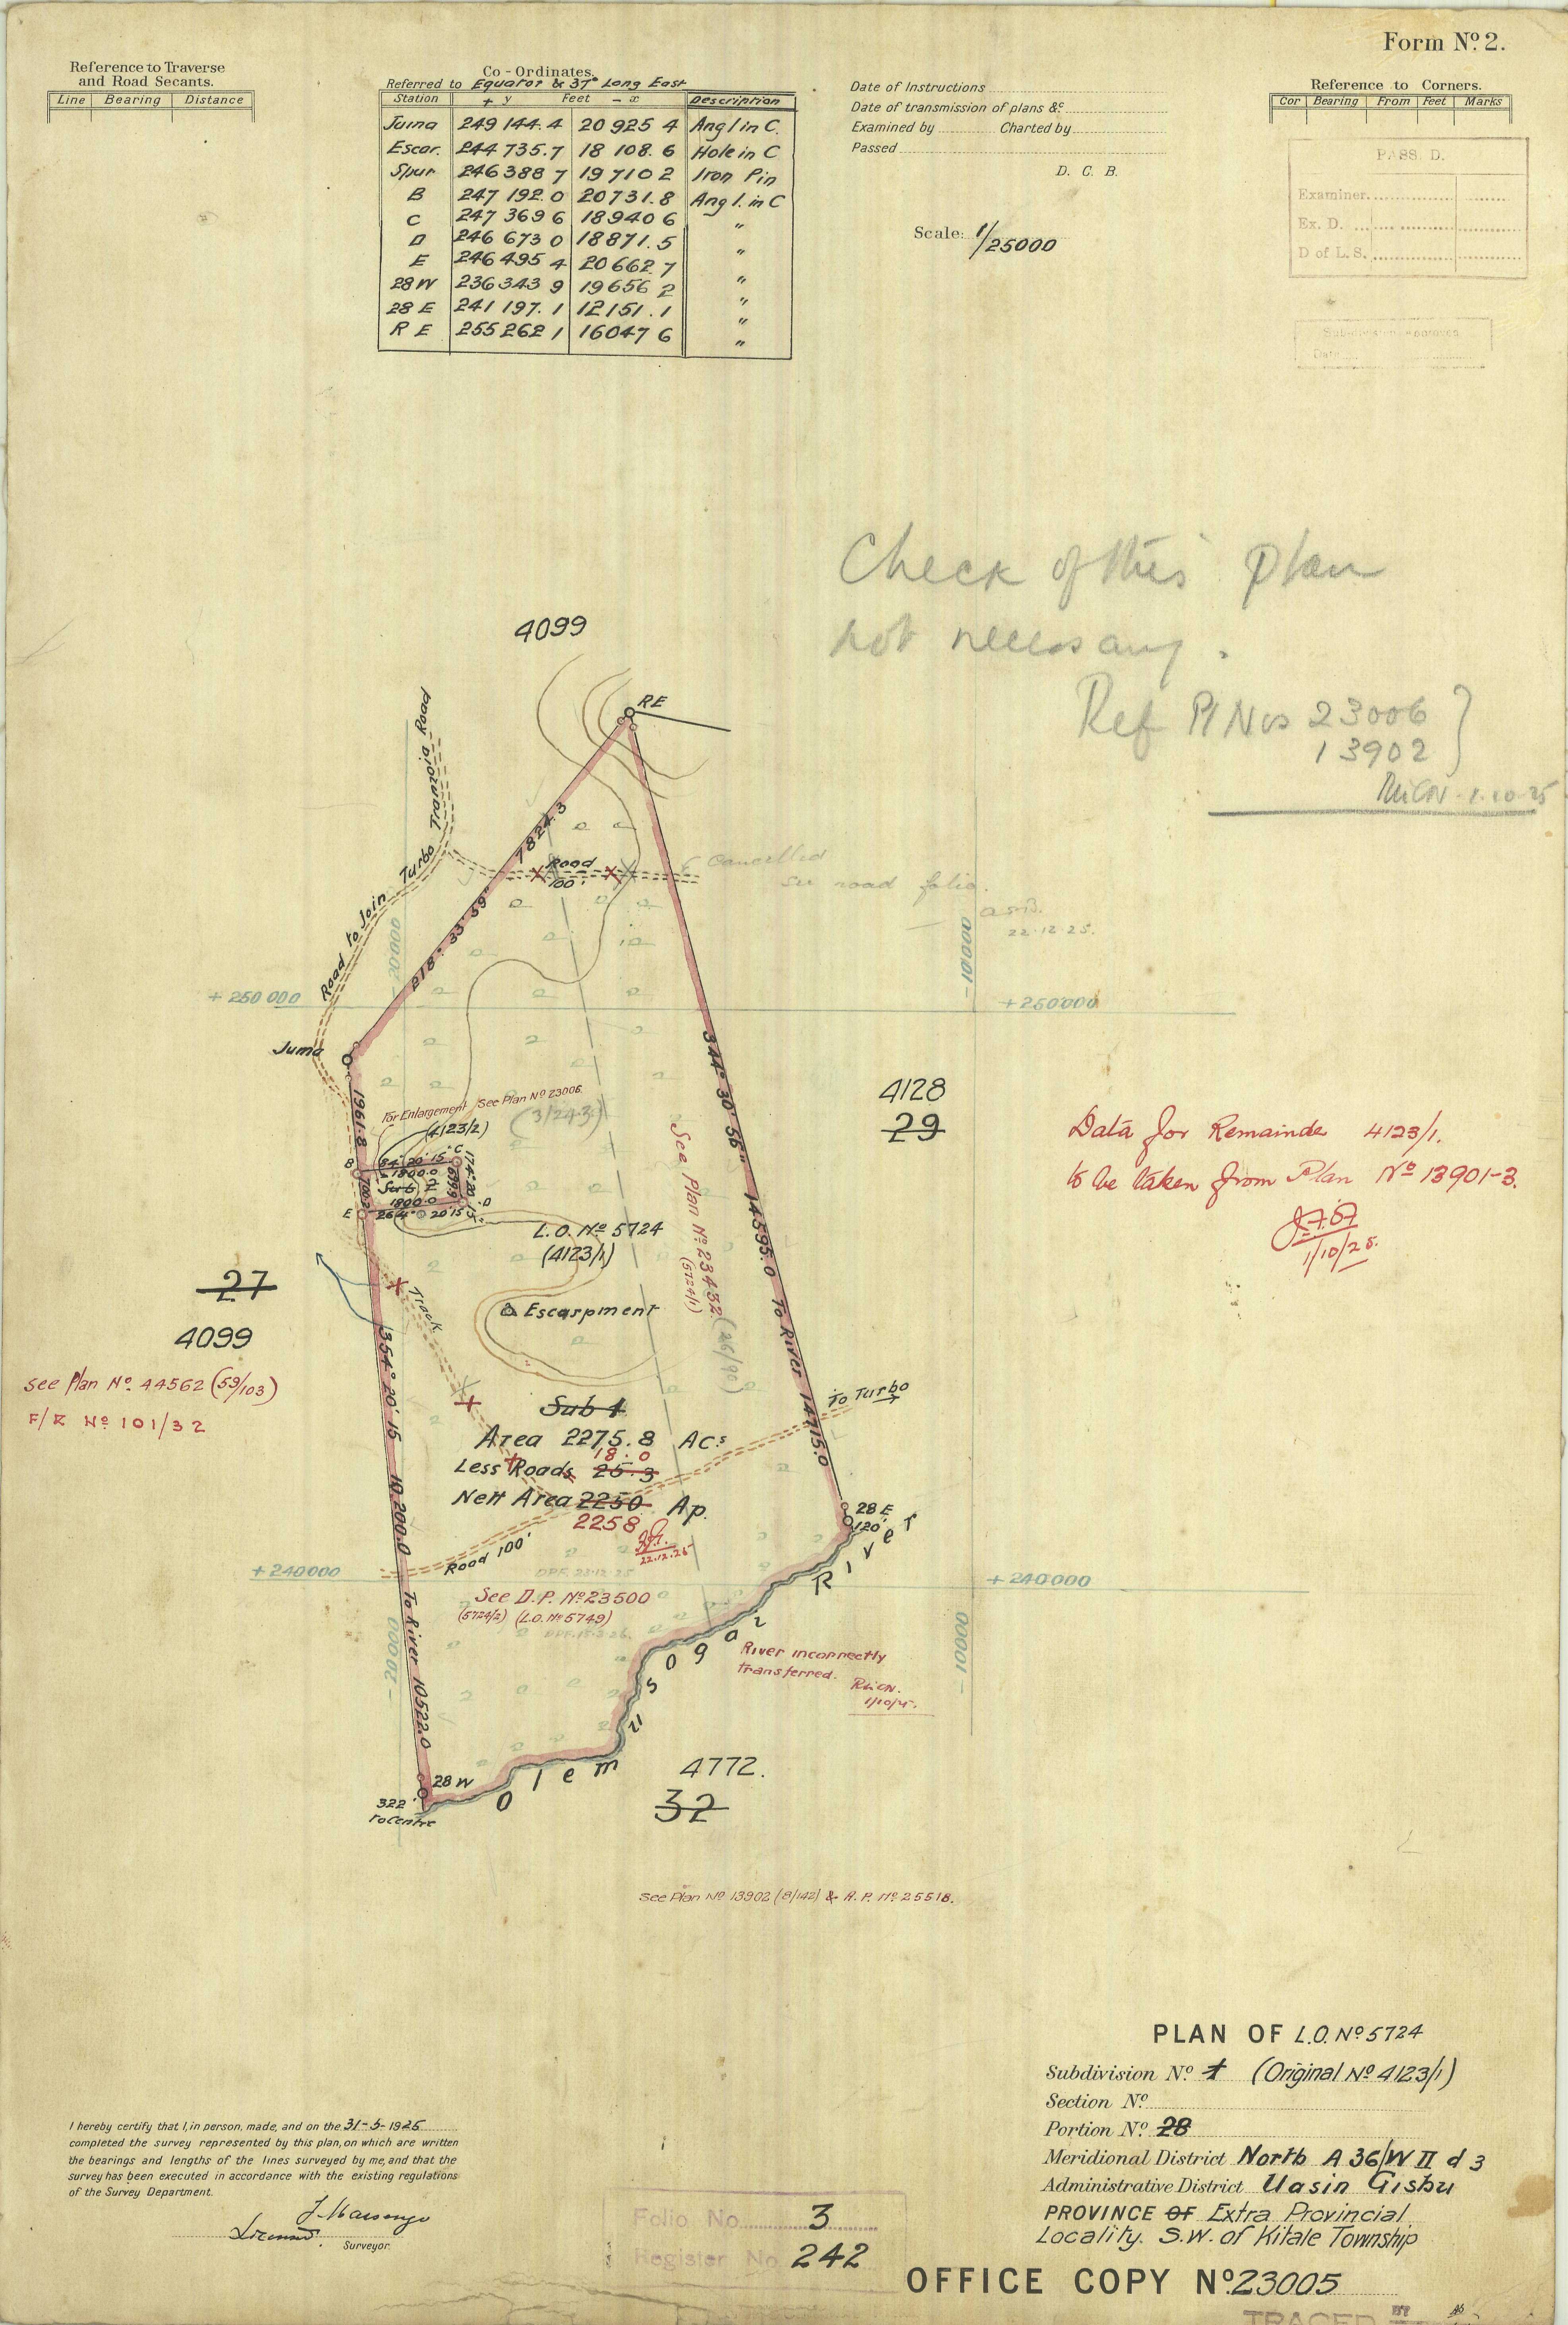 Form Nº 2.
Reference to Traverse
and Road Secants.
Line Bearing Distance
Co-Ordinates.
Referred to Equator & 37° Long East
Station + y Feet - x Description
Juma 249 144.4 20 925 4 Ang 1 in C.
Escar. 244 735.7 18 108.6 Hole in C
Spur 246 388 7 19 710 2 Iron Pin
B 247 192.0 20731.8 Ang 1. in C
C 247 369 6 18940 6 "
D 246 673 0 18871.5 "
E 246 495 4 20 662 7 "
28 W 236 343 9 19656 2 "
28 E 241 197.1 12151.1 "
R E 255 262 1 16047 6 "
Date of Instructions
Date of transmission of plans &c
Examined by Charted by
Passed
D. C. B.
Scale: 1/25000
Reference to Corners.
Cor Bearing From Feet Marks
PASS. D.
Examiner.
Ex. D.
D of L. S.
Date
Check of this Plan
not necessary.
Ref Pl Nos 23006
13902
1.10.25
4099
RE
Road to Join Turbo Tranzoia Road
7824.3
218° 33' 59"
Road
100'
Cancelled
see road folio.
22.12.25.
- 20000
- 10000
+ 250 000
+ 250000
Juma
1961.8
For Enlargement See Plan Nº 23006.
(4123/2)
(3/243)
B
84° 20' 15" C
1800.0
Sub 2
1800.0
264° 20' 15" D
E
L.O. Nº 5724
(4123/1)
See Plan Nº 23432 (26/90)
(5724/1)
344° 30' 56" 14595.0 To River 14715.0
4128
29
Data for Remainde 4123/1.
to be taken from Plan Nº 13901-3.
1/10/25.
27
4099
See Plan Nº 44562 (59/103)
F/R Nº 101/32
Track
Escarpment
354° 20' 15 10,200.0 To River 10522.0
To Turbo
Sub 1
Area 2275.8 Acs
18.0
Less Roads 25.3
Nett Area 2250 Ap.
2258
22.12.25
Road 100'
28 E
120'
+ 240000
+ 240000
DPF. 23.12.25
See D.P. Nº 23500
(5724/2) (L.O. Nº 5749)
- 20000
- 10000
River incorrectly
transferred.
1/10/25.
Olemu Sogoi River
28 W
322'
To Centre
4772.
32
See Plan Nº 13902 (8/142) & A.P. Nº 25518.
PLAN OF L.O. Nº 5724
Subdivision Nº 1 (Original Nº 4123/1)
Section Nº
Portion Nº 28
Meridional District North A 36/W II d 3
Administrative District Uasin Gishu
PROVINCE OF Extra Provincial
Locality. S.W. of Kitale Township
OFFICE COPY Nº 23005
TRACED BY
I hereby certify that I, in person, made, and on the 31-5-1925
completed the survey represented by this plan, on which are written
the bearings and lengths of the lines surveyed by me, and that the
survey has been executed in accordance with the existing regulations
of the Survey Department.
Licensed.
Surveyor.
Folio No. 3
Register No. 242